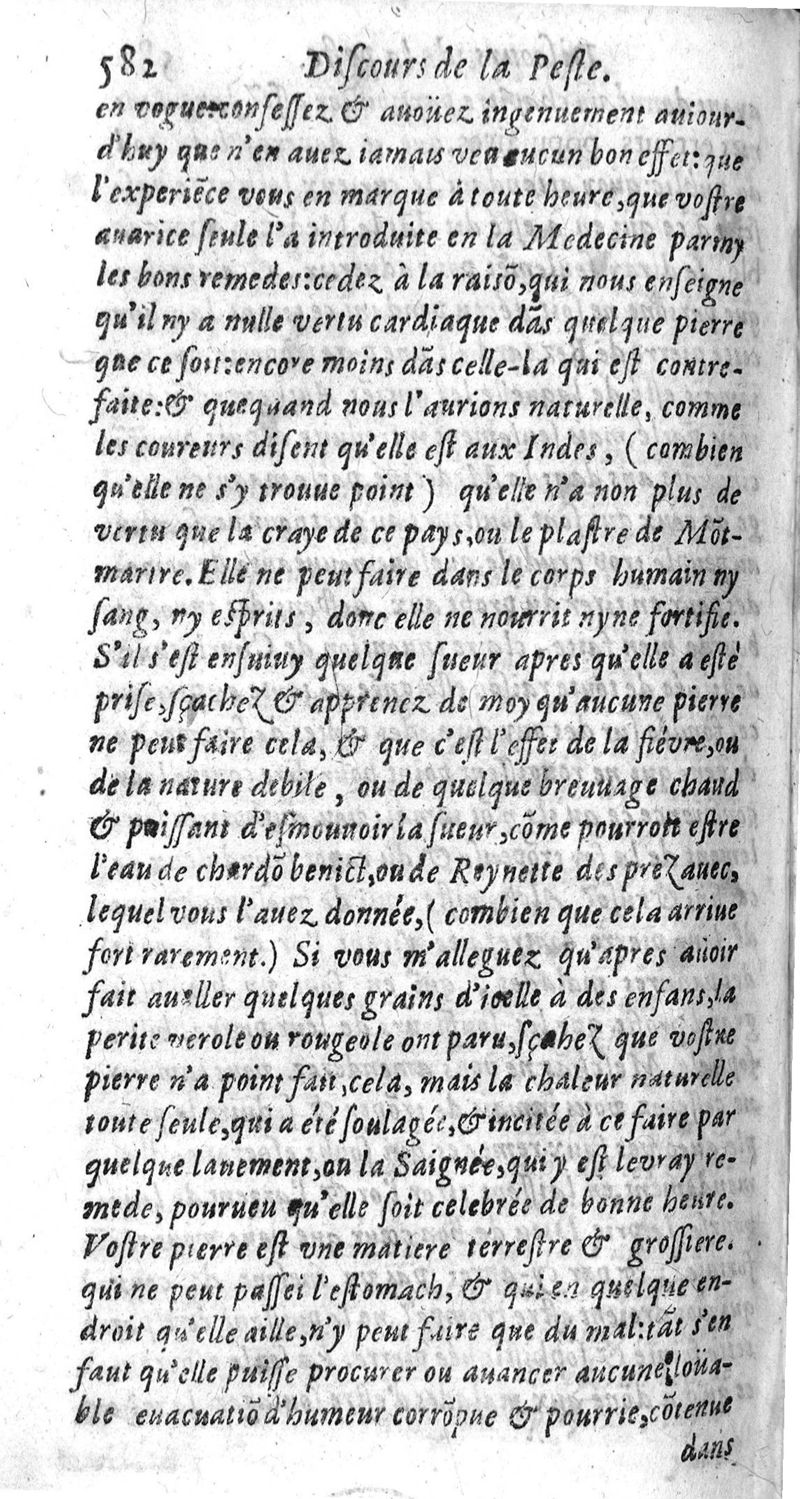 582 Diſcours de la Peſte.
en vogue: confeſſez & auoüez ingenuement auiour-
d'huy que n'en auez iamais veu aucun bon effet: que
l'experiẽce vous en marque à toute heure, que voſtre
auarice ſeule l'a introduite en la Medecine parmy
les bons remedes: cedez à la raiſõ, qui nous enſeigne
qu'il ny a nulle vertu cardiaque dãs quelque pierre
que ce ſoit: encore moins dãs celle-la qui eſt contre-
faite: & que quand nous l'aurions naturelle, comme
les coureurs diſent qu'elle eſt aux Indes, ( combien
qu'elle ne s'y trouue point ) qu'elle n'a non plus de
vertu que la craye de ce pays, ou le plaſtre de Mõt-
martre. Elle ne peut faire dans le corps humain ny
ſang, ny eſprits, donc elle ne nourrit ny ne fortifie.
S'il s'eſt enſuiuy quelque ſueur apres qu'elle a eſté
priſe, ſçachez & apprenez de moy qu'aucune pierre
ne peut faire cela, & que c'eſt l'effet de la fiévre, ou
de la nature debile, ou de quelque breuuage chaud
& puiſſant d'eſmouuoir la ſueur, cõme pourroit eſtre
l'eau de chardõ benict, ou de Reynette des prez auec,
lequel vous l'auez donnée, ( combien que cela arriue
fort rarement.) Si vous m'alleguez qu'apres auoir
fait aualler quelques grains d'icelle à des enfans, la
petite verole ou rougeole ont paru, ſçahez que voſtre
pierre n'a point fait, cela, mais la chaleur naturelle
toute ſeule, qui a été ſoulagée, & incitée à ce faire par
quelque lauement, ou la Saignée, qui y eſt le vray re-
mede, pourueu qu'elle ſoit celebrée de bonne heure.
Voſtre pierre eſt vne matiere terreſtre & groſſiere.
qui ne peut paſſei l'eſtomach, & qui en quelque en-
droit qu'elle aille, n'y peut faire que du mal: tãt s'en
faut qu'elle puiſſe procurer ou auancer aucune loüa-
ble euacuatiõ d'humeur corrõpue & pourrie, cõtenue
dans